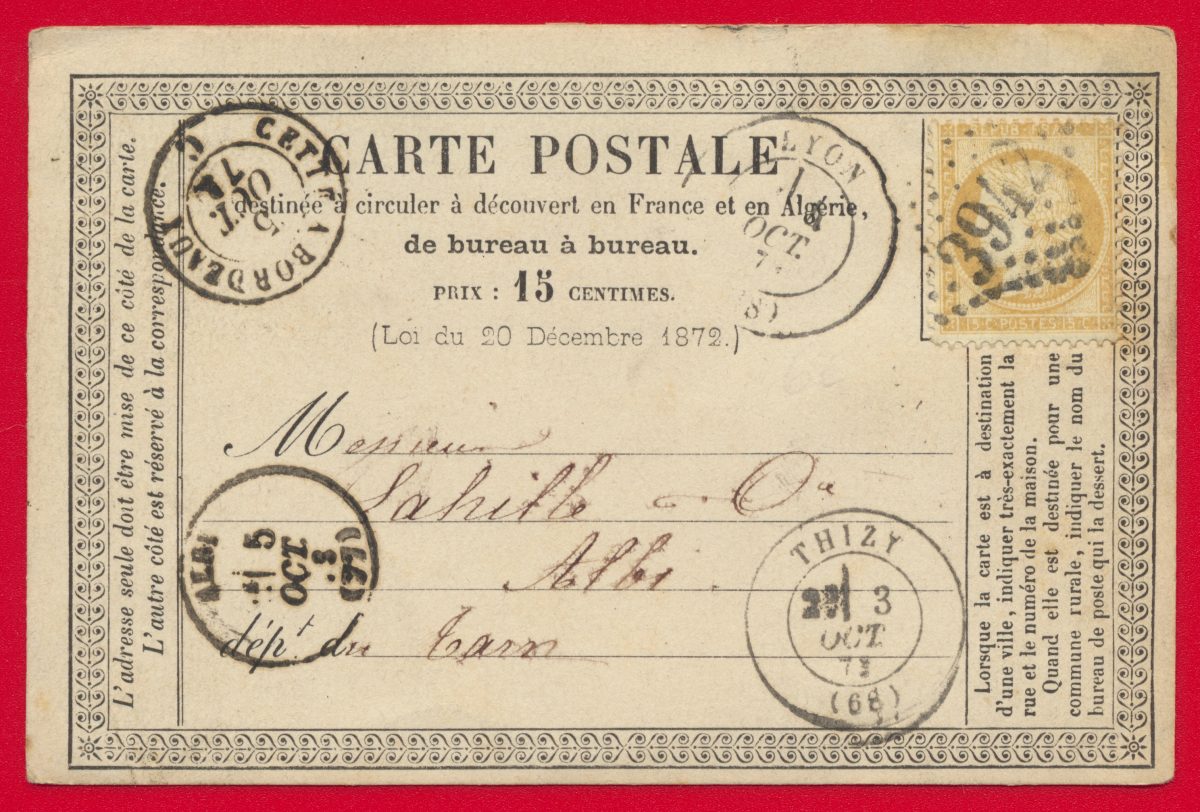 CARTE POSTALE
destinée à circuler à découvert en France et en Algérie,
de bureau à bureau.
PRIX : 15 CENTIMES.
(Loi du 20 Décembre 1872.)
L'adresse seule doit être mise de ce côté de la carte.
L'autre côté est réservé à la correspondance.
CETTE A BORDEAUX
5
OCT.
LYON
OCT.
REPUB
15 C. POSTES 15 C.
Messieurs
Albi
dépt du Tarn
ALBI
5
OCT.
(77)
THIZY
3
OCT.
(68)
Lorsque la carte est à destination
d'une ville, indiquer très-exactement la
rue et le numéro de la maison.
Quand elle est destinée pour une
commune rurale, indiquer le nom du
bureau de poste qui la dessert.